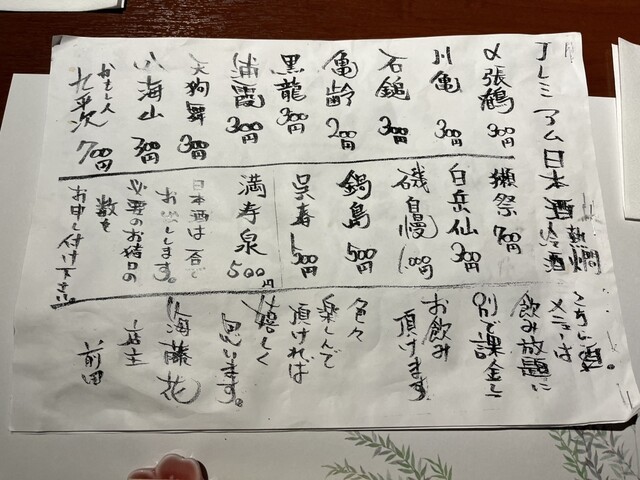 プレミアム日本酒 冷酒 熱燗
〆張鶴 300円
川亀 300円
石鎚 300円
亀齢 200円
黒龍 300円
浦霞 300円
天狗舞 300円
八海山 300円
九平次 700円
獺祭 700円
白岳仙 300円
磯自慢 1,000円
鍋島 500円
呉春 500円
満寿泉 500円
日本酒は一合で
お出しします。
必要のお猪口の
数を
お申し付け下さい。
こちら酒
メニューは
飲み放題に
別で課金して
お飲み
頂けます
色々
楽しんで
頂ければ
嬉しく
思います。
海藤花
店主
前田